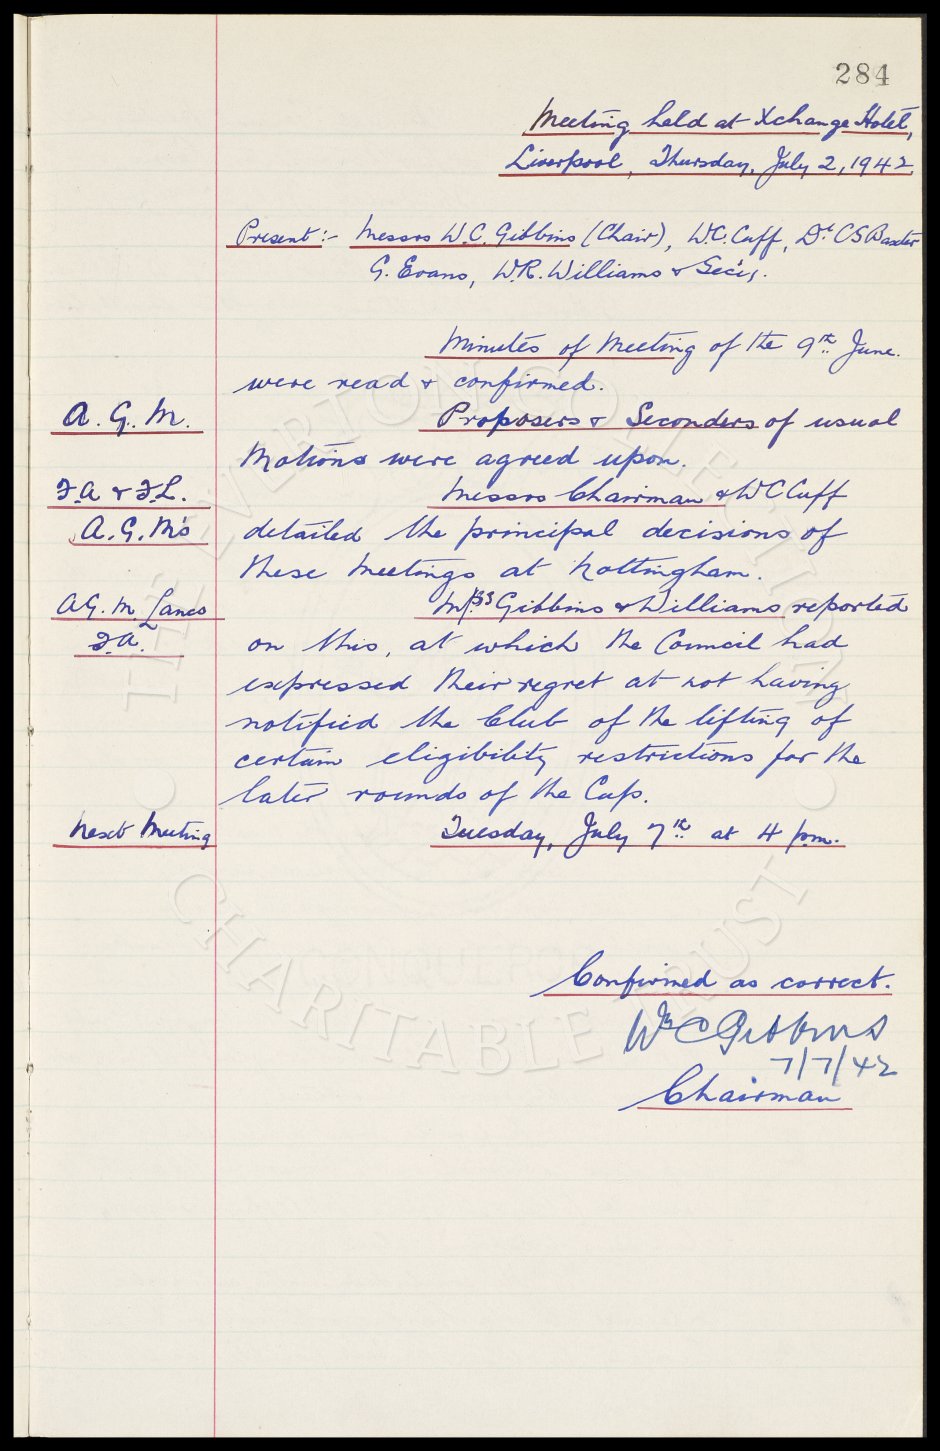 284
Meeting held at Xchange Hotel,
Liverpool, Thursday, July 2, 1942
Present:- Messrs W.C. Gibbins (Chair), W.C. Cuff, Dr. C S Baxter
G. Evans, W.R. Williams & Sec'y.
Minutes of Meeting of the 9th June.
were read & confirmed.
A. G. M.
Proposers & Seconders of usual
Motions were agreed upon.
F.A & F.L.
Messrs Chairman & W C Cuff
A. G. M's
detailed the principal decisions of
these Meetings at Nottingham.
A G. M. Lancs
Gibbins & Williams reported
F.A.
on this, at which the Council had
expressed their regret at not having
notified the Club of the lifting of
certain eligibility restrictions for the
later rounds of the Cup.
Next Meeting
Tuesday, July 7th at 4 p.m.
Confirmed as correct.
Wm C Gibbins
7/7/42
Chairman
THE EVERTON COLLECTION
CHARITABLE TRUST